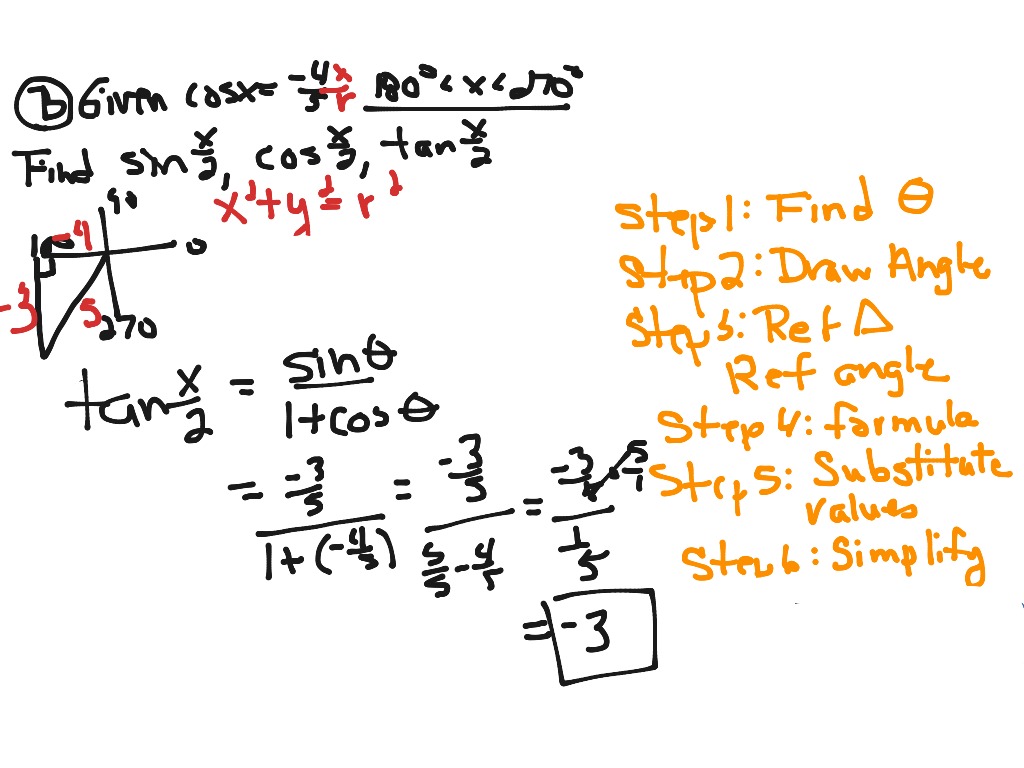 B Given cosx = -4/5 x/r 180° < x < 270°
Find sin x/2, cos x/2, tan x/2
x² + y² = r²
90
180 -4 0
-3 5
270
tan x/2 = sinθ / 1+cosθ
= -3/5 / 1+(-4/5) = -3/5 / 5/5 - 4/5 = -3/5 · 5/1 / 1/5
= -3
Step 1: Find θ
Step 2: Draw Angle
Step 3: Ref Δ
Ref angle
Step 4: formula
Step 5: Substitute
values
Step 6: Simplify